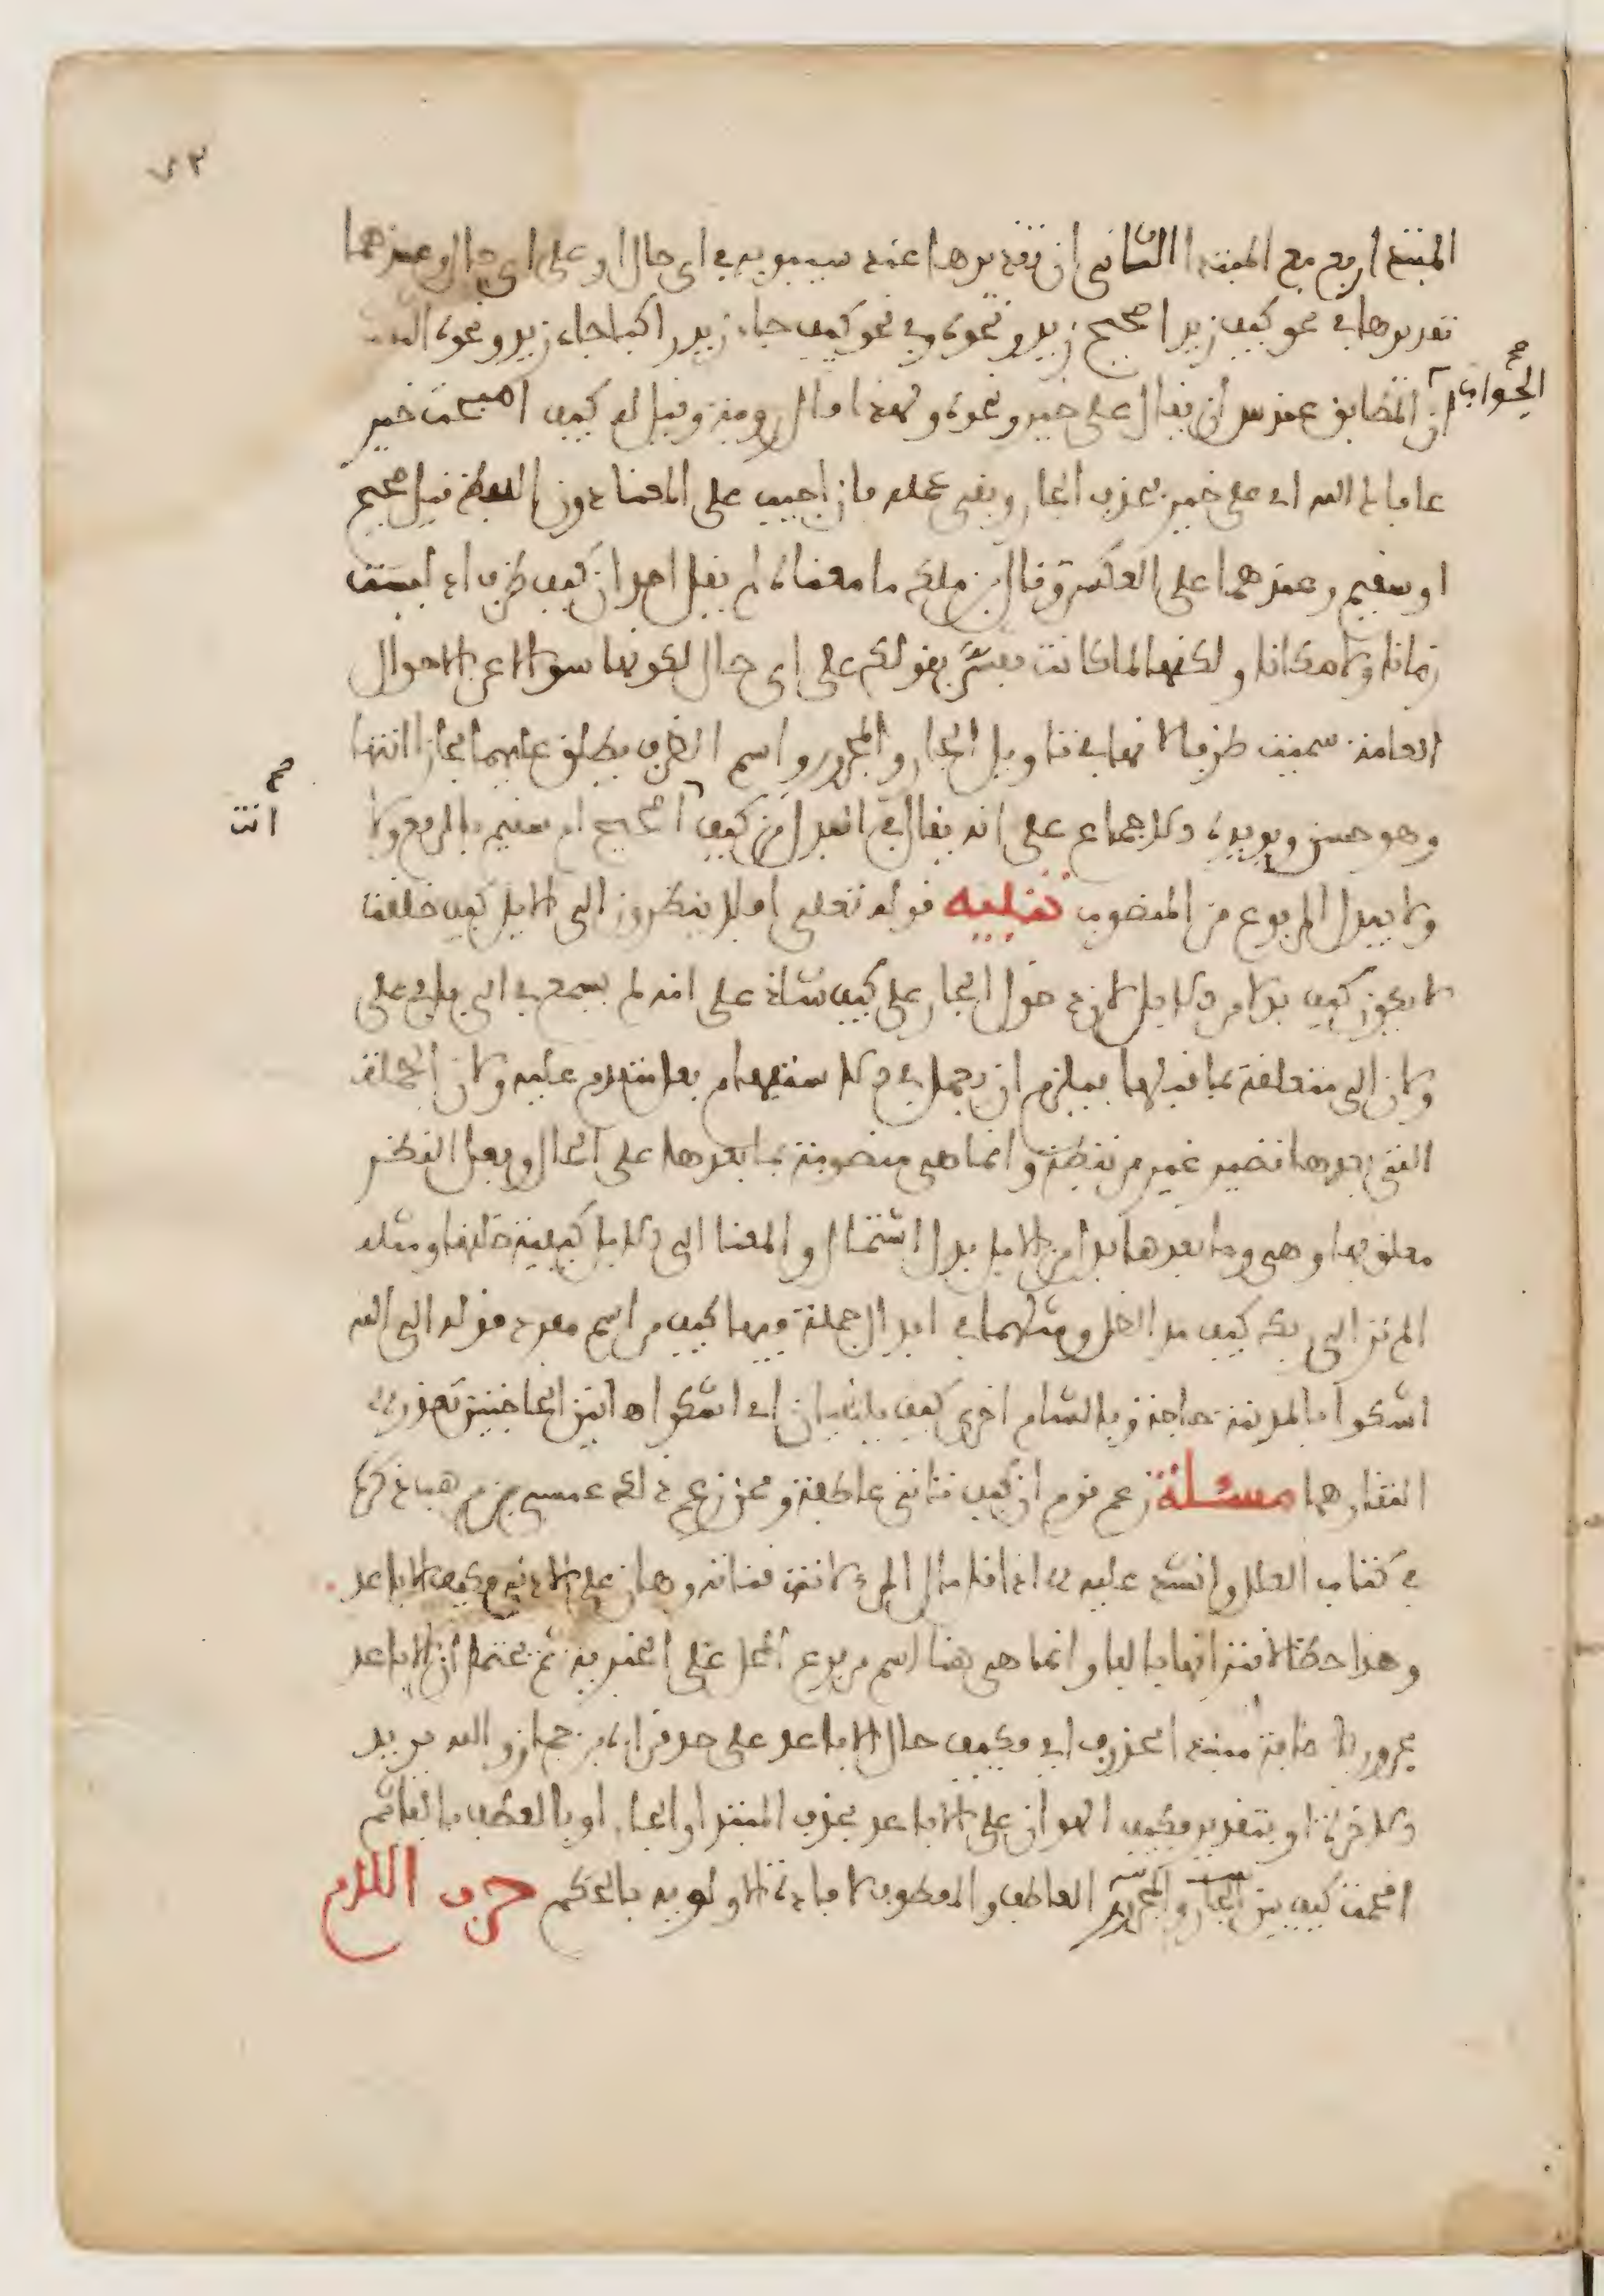 ٧٣
المبتدا رفع مع المبتدا الثاني ان تقديرها عند سيبويه في اي حال او على اي حال وعندهما
تقديرها في نحو كيف زيد اصحيح زيد ونحوه وفي نحو كيف جاء زيد راكبا جاء زيد ونحوه الثالث
الجواب صح
ان المطابق عند س ان يقال على خير ونحوه ولهذا قال رومية وقيل له كيف اصبحت خير
عافاك الله اي على خير بحذف الجار وبقي عمله فان اجيب على المعنا دون اللفظ قيل صحيح
او سقيم وعندهما على العكس وقال بن ملك ما معناه لم يقل احد ان كيف ظرف اذ ليست
زمانا ولا مكانا ولكنها لما كانت تفسر بقولك على اي حال لكونها سوالا عن الاحوال
العامة سميت ظرفا لانها في تاويل الجار والمجرور واسم الظرف يطلق عليهما مجازا انتها
وهو حسن ويويده الاجماع على انه يقال في البدل من كيف اصحيح ام سقيم بالرفع ولا
انت صح
ولا يبدل المرفوع من المنصوب تنبيه قوله تعلى افلا ينظرون الى الابل كيف خلقت
لا يجوز كيف بدلا من الابل لان دخول الجار على كيف شاذ على انه لم يسمع في الى بل في على
ولان الى متعلقة بما قبلها فيلزم ان يعمل في الاستفهام فعل متقدم عليه ولان الجملة
التي بعدها تصير غير مرتبطة وانما هي منصوبة بما بعدها على الحال وفعل النظر
معلق بها وهي وما بعدها بدل من الابل بدل اشتمال والمعنا الى الابل كيفية خلقها ومثله
الم تر الى ربك كيف مد الظل ومثلهما في ابدال جملة فيها كيف من اسم مفرد قوله الى الله
اشكوا بالمدينة حاجة وبالشام اخرى كيف يلتقيان اي اشكوا هاتين الحاجتين تعذر
التقاءهما مسئلة زعم قوم ان كيف تاتي عاطفة وممن زعم ذلك عيسى بن موهب ذكره
في كتاب العلل وانشد عليه اذا قل مال المرء لانت قناته وهان على الادنى فكيف الاباعد
وهذا خطا لاقترانها بالفا وانما هي هنا اسم مرفوع المحل على الخبرية ثم يحتمل ان الاباعد
مجرور باضافة مبتدا محذوف اي فكيف حال الاباعد على حد قراءة بن جماز والله يريد
الاخرة او بتقدير فكيف الهوان على الاباعد بحذف المبتدا والجار او بالعطف بالفا ثم
اقحمت كيف بين العاطف والمعطوف لافادة الاولوية بالحكم حرف اللام